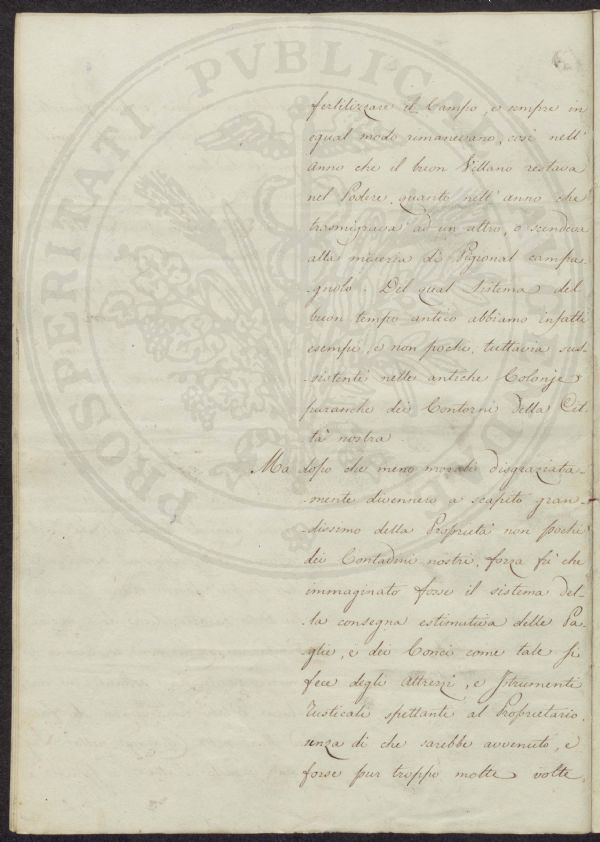 fertilizzare il Campo, e sempre in
egual modo rimanevano, così nell'
Anno che il buon Villano restava
nel Podere, quanto nell'anno che
trasmigrava ad un altro, o scendeva
alla miseria di Pigional campa-
-gnolo. Del qual Sistema del
buon tempo antico abbiamo infatti
esempi, e non pochi, tuttavia sus-
-sistenti nelle antiche Colonje
puranche dei Contorni della Cit-
tà nostra.
Ma dopo che meno morali disgraziata-
-mente divennero a scapito gran-
-dissimo della Proprietà non pochi
dei Contadini nostri, forza fù che
immaginato fosse il sistema del-
-la consegna estimativa delle Pa-
glie, e dei Conci come tale si
fece degli Attrezzi, e Istrumenti
Rusticali spettanti al Proprietario,
senza di che sarebbe avvenuto, e
forse pur troppo molte volte
PROSPERITATI PVBLICAE